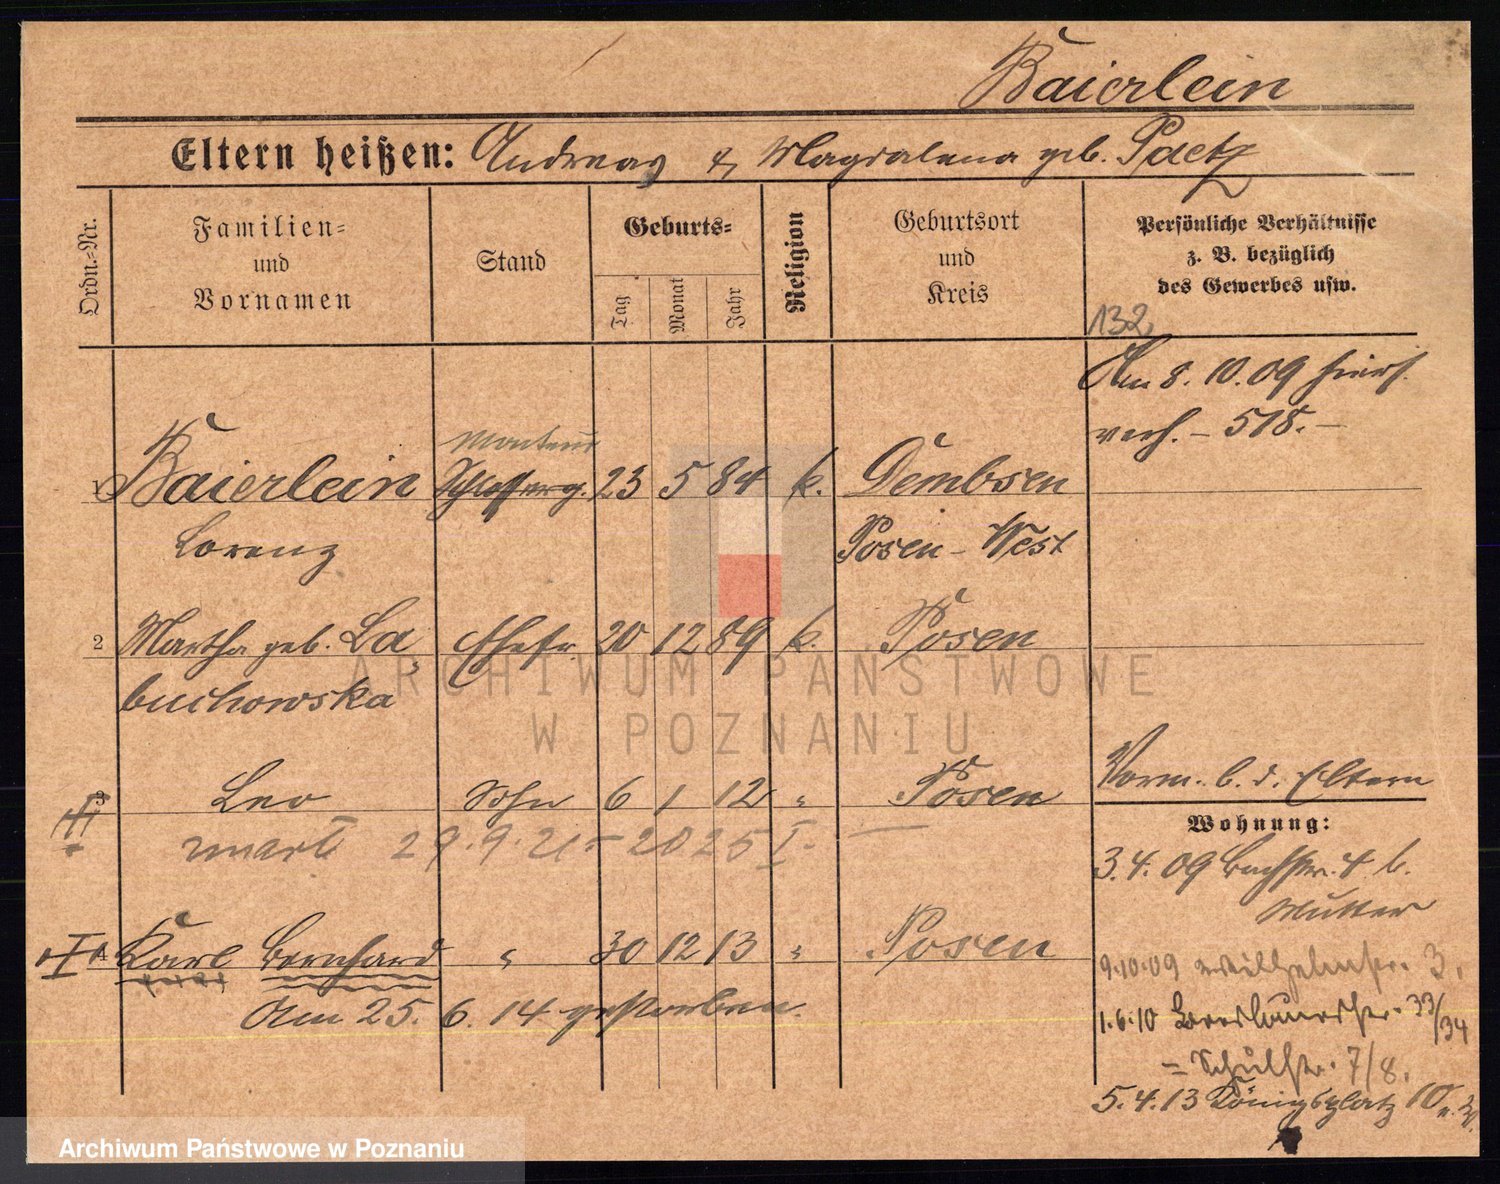 Baierlein
Eltern heißen: Andreas & Magdalena geb. Paetz
Ordn.-Nr.
Familien-
und
Vornamen
Stand
Geburts-
Tag
Monat
Jahr
Religion
Geburtsort
und
Kreis
Persönliche Verhältnisse
z. B. bezüglich
des Gewerbes usw.
132
Am 8. 10. 09 hiers.
verh. – 518. –
Monteur
1 Baierlein Schlosserg. 23 5 84 k. Dembsen
Lorenz Posen - West
2 Martha geb. La- Ehefr. 20 12 89 k. Posen
buchowska
3 Leo Sohn 6 1 12 " Posen
29.9.21 - 2025 I.
4 Karl Bernhard " 30 12 13 " Posen
Am 25. 6. 14 gestorben.
Vorm. b. d. Eltern
Wohnung:
3.4.09 Bachstr. 4 b.
Mutter
9.10.09 Wilhelmstr. 3.
1.6.10 Breslauerstr. 33/34
= Schulstr. 7/8.
5.4.13 Königsplatz 10
ARCHIWUM PAŃSTWOWE
W POZNANIU
Archiwum Państwowe w Poznaniu